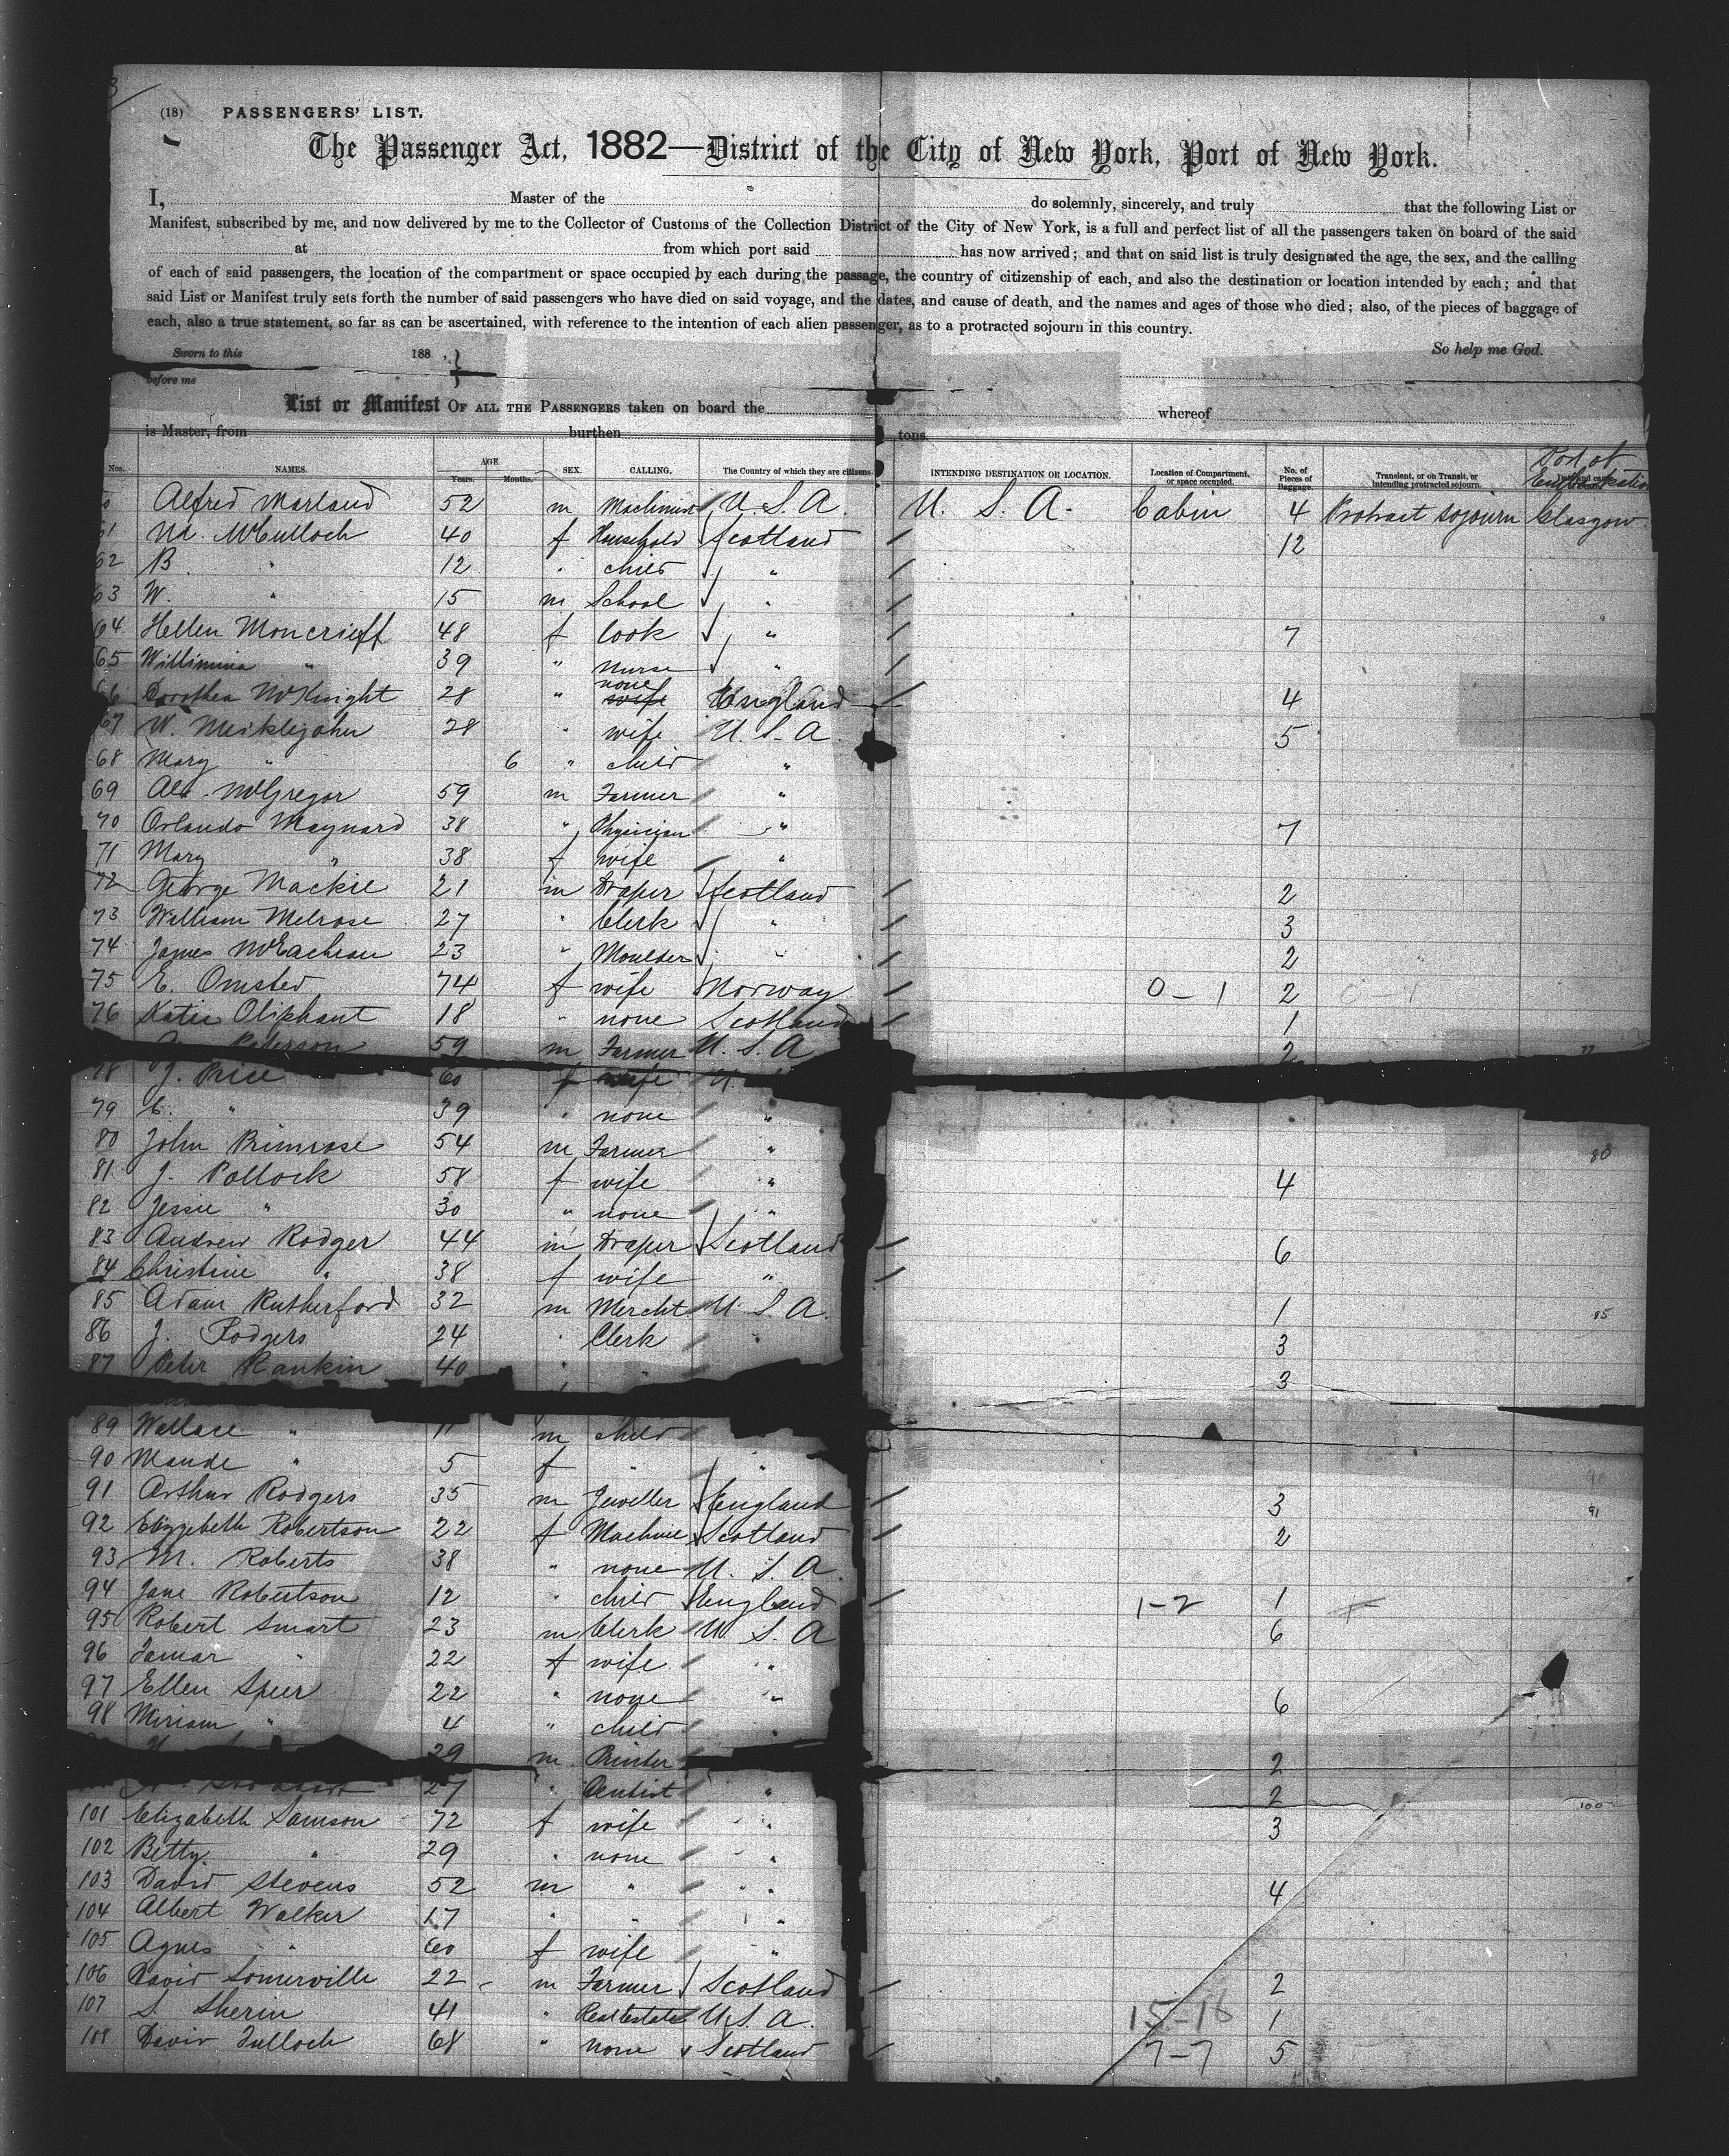 (18) PASSENGERS' LIST.
The Passenger Act, 1882—District of the City of New York, Port of New York.
I, Master of the do solemnly, sincerely, and truly that the following List or
Manifest, subscribed by me, and now delivered by me to the Collector of Customs of the Collection District of the City of New York, is a full and perfect list of all the passengers taken on board of the said
at from which port said has now arrived; and that on said list is truly designated the age, the sex, and the calling
of each of said passengers, the location of the compartment or space occupied by each during the passage, the country of citizenship of each, and also the destination or location intended by each; and that
said List or Manifest truly sets forth the number of said passengers who have died on said voyage, and the dates, and cause of death, and the names and ages of those who died; also, of the pieces of baggage of
each, also a true statement, so far as can be ascertained, with reference to the intention of each alien passenger, as to a protracted sojourn in this country.
Sworn to this 188 , So help me God.
before me
List or Manifest OF ALL THE PASSENGERS taken on board the whereof
is Master, from burthen tons
Nos. NAMES. AGE Years. Months. SEX. CALLING. The Country of which they are citizens. INTENDING DESTINATION OR LOCATION. Location of Compartment, or space occupied. No. of Pieces of Baggage. Transient, or on Transit, or intending protracted sojourn. Port of Embarkation
Alfred Marland 52 m Machinist U.S.A. U. S. A. Cabin 4 Protract Sojourn Glasgow
61 McCulloch 40 f Household Scotland 12
62 B " 12 " child "
63 W. " 15 m School "
64 Hellen Moncrieff 48 f Cook " 7
65 Willimina " 39 " nurse "
66 Dorothea McKnight 28 " none wife England 4
67 W. Meiklejohn 28 " wife U.S.A. 5
68 Mary " 6 " child "
69 Alex. McGregor 59 m Farmer "
70 Orlando Maynard 38 " Physician " 7
71 Mary " 38 f wife "
72 George Mackie 21 m Draper Scotland 2
73 William Melrose 27 " Clerk " 3
74 James McEachran 23 " Moulder " 2
75 E. Omsted 74 f wife Norway 0-1 2
76 Katie Oliphant 18 " none Scotland 1
Paterson 59 m Farmer U.S.A 2
78 J. Price 60 f wife U.
79 C. " 39 " none "
80 John Primrose 54 m Farmer " 80
81 J. Pollock 58 f wife " 4
82 Jessie " 30 " none "
83 Andrew Rodger 44 m Draper Scotland 6
84 Christine " 38 f wife "
85 Adam Rutherford 32 m Mercht. U.S.A. 1 85
86 J. Rodgers 24 " Clerk " 3
87 Peter Rankin 40 " " 3
89 Wallace " 11 m child
90 Maude " 5 f " " 90
91 Arthur Rodgers 35 m Jeweller England 3 91
92 Elizzebeth Robertson 22 f Machine Scotland 2
93 M. Roberts 38 " none U.S.A.
94 Jane Robertson 12 " child England 1-2 1
95 Robert Smart 23 m Clerk U.S.A 6
96 Tamar " 22 f wife "
97 Ellen Speir 22 " none " 6
98 Miriam " 4 " child "
29 m Printer 2
27 " Dentist " 2 100
101 Elizabeth Samson 72 f wife " 3
102 Betty " 29 " none "
103 David Stevens 52 m " " 4
104 Albert Walker 17 " " "
105 Agnes " 60 f wife "
106 David Somerville 22 m Farmer Scotland 2
107 S. Sherin 41 " Real Estate U.S.A. 15-16 1
108 David Tulloch 68 " none Scotland 7-7 5